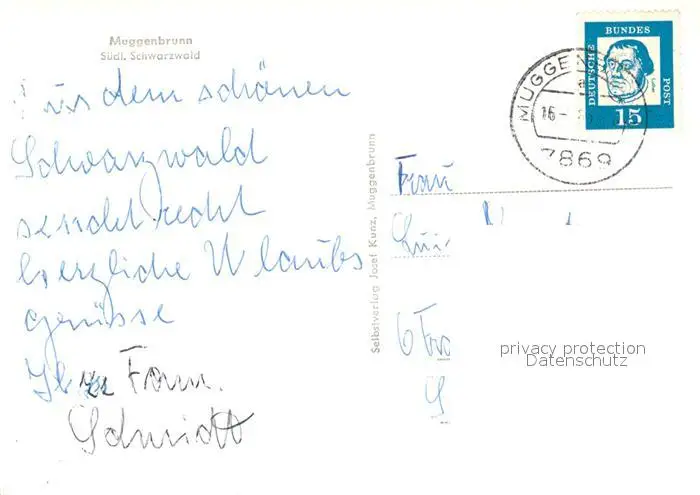 Muggenbrunn
Südl. Schwarzwald
Aus dem schönen
Schwarzwald
sendet recht
herzliche Urlaubs
genüsse
Fam.
Schmidt
Selbstverlag Josef Kunz, Muggenbrunn
DEUTSCHE
BUNDES
POST
15
MUGGEN
7869
Frau
privacy protection
Datenschutz